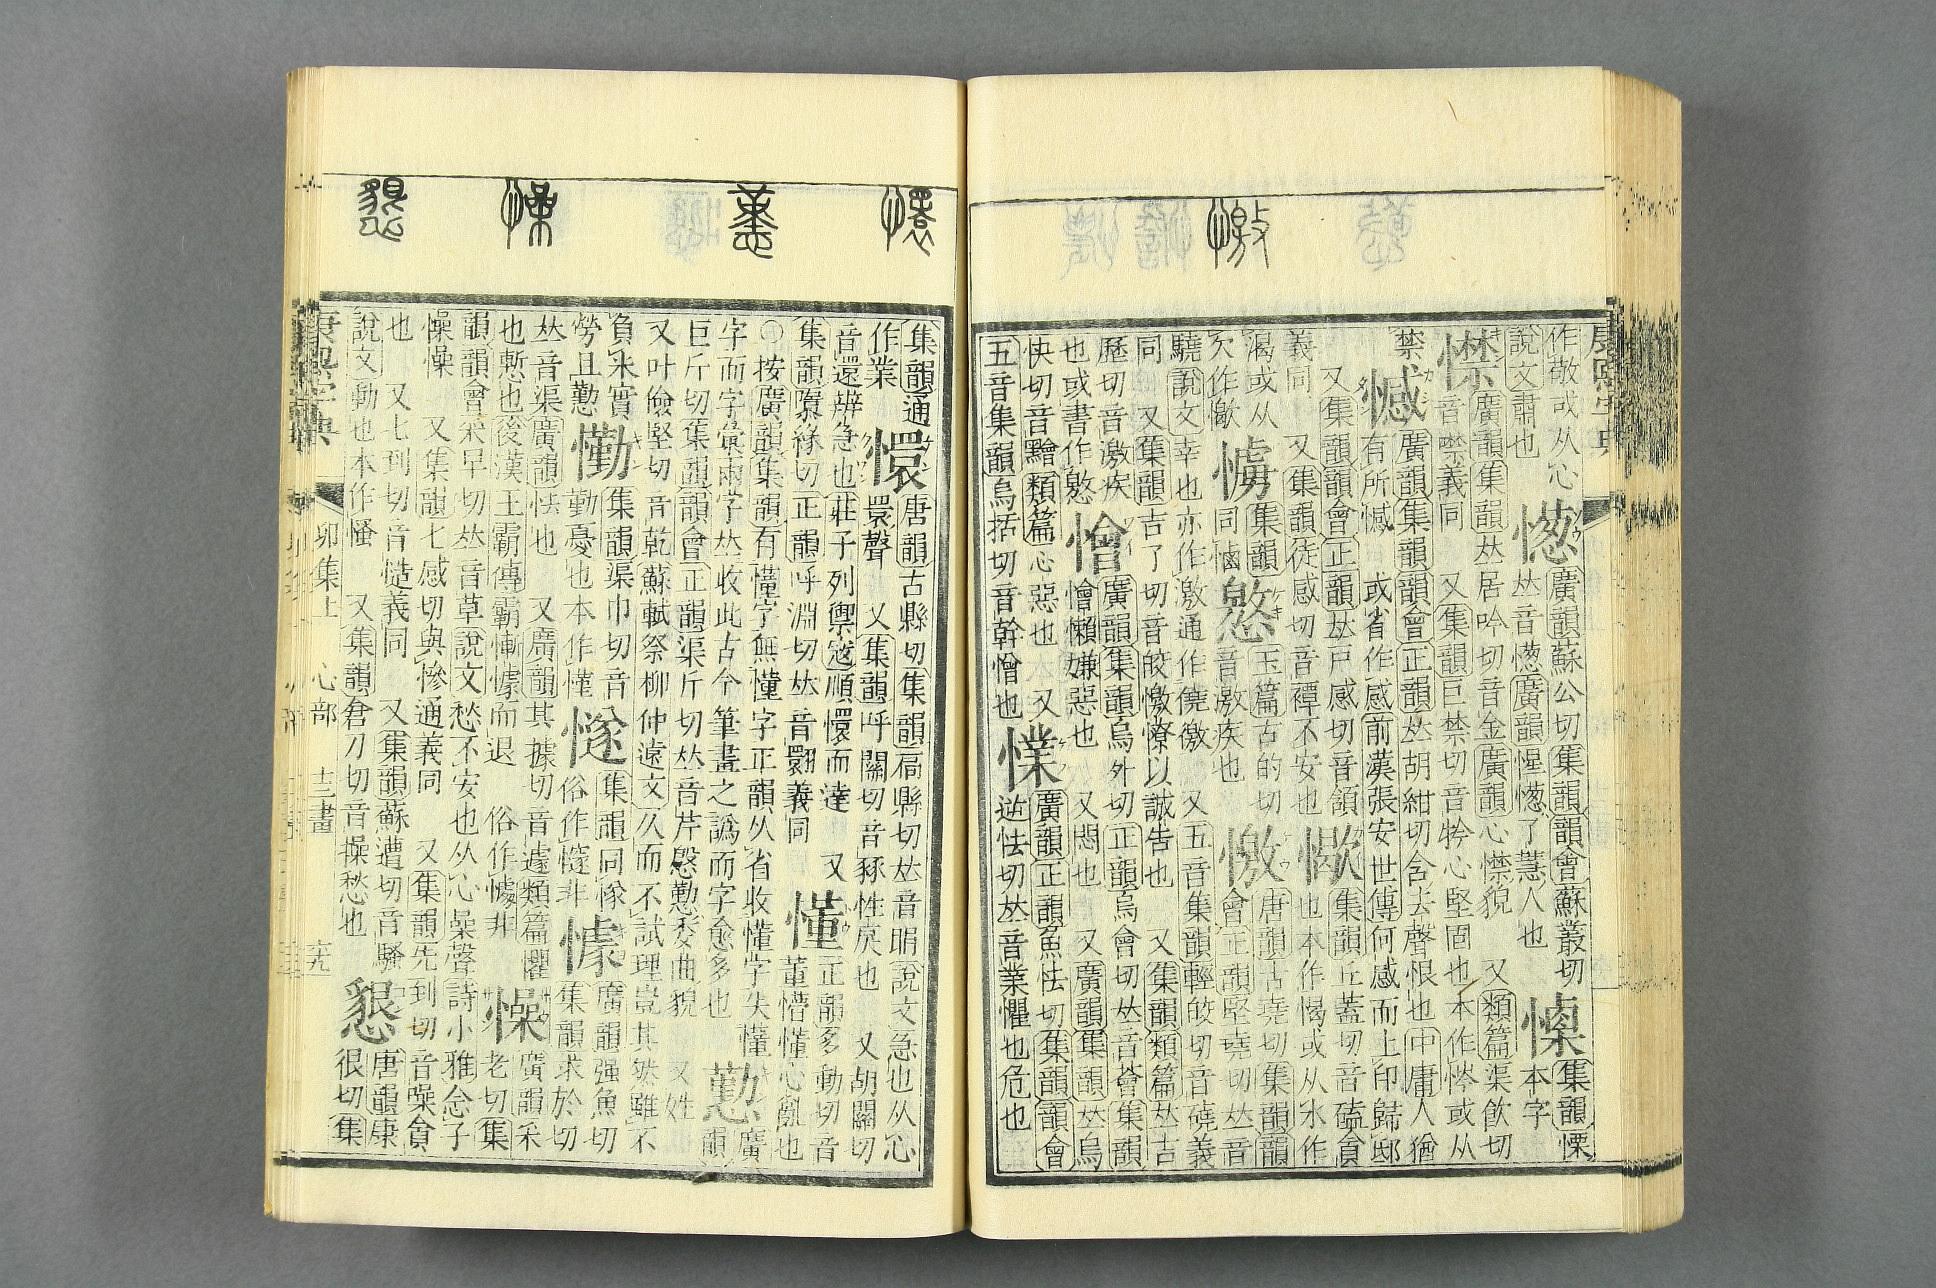 憿
作敬或从心 憽 廣韻蘇公切集韻韻會蘇叢切 集韻慄
說文肅也 𠀤音憽廣韻惺憽了慧人也 本字
廣韻集韻𠀤居吟切音金廣韻心㦗貌 又類篇渠飲切
㦗 音噤義同 又集韻巨禁切音矜心堅固也本作 或从
禁 憾 廣韻集韻韻會正韻𠀤胡紺切含去聲恨也中庸人猶
有所憾 或省作感前漢張安世傳何感而上印歸邸
又集韻韻會正韻𠀤戸感切音頷 集韻丘蓋切音磕貪
義同 又集韻徒感切音禫不安也 也本作愒或从水作
渴或从 集韻 玉篇古的切 唐韻古堯切集韻韻
欠作㵣 憦 同 憿 音激疾也 憿 會正韻堅堯切𠀤音
驍說文幸也亦作激通作僥徼 又五音集韻輕皎切音磽義
同 又集韻吉了切音皎憿憭以誠告也 又集韻類篇𠀤古
歷切音激疾 廣韻集韻烏外切正韻烏會切𠀤音薈集韻
也或書作憿 懀 懀懶嫌惡也 又悶也 又廣韻集韻𠀤烏
快切音黵類篇心惡也 又 廣韻正韻魚怯切集韻韻會
五音集韻烏括切音斡憎也 㦡 逆怯切𠀤音業懼也危也
康熙字典
懁 懃 懆 懇
集韻通 唐韻古縣切集韻扃縣切𠀤音睊說文急也从心
作業 懁 睘聲 又集韻呼關切音豩性戾也 又胡關切
音還辨急也莊子列禦寇順懁而達 又 正韻多動切音
集韻隳緣切正韻呼淵切𠀤音翾義同 懂 董懵懂心亂也
○按廣韻集韻有懂字無憧字正韻从省收懂字失憧 廣
字而字彙兩字𠀤收此古今筆畫之譌而字愈多也 懃 韻
巨斤切集韻韻會正韻渠斤切𠀤音芹慇懃委曲貌 又姓
又叶儉堅切音乾蘇軾祭柳仲遠文久而不試理豈其然雖不
負米實 集韻渠巾切音 集韻同㒸 廣韻强魚切
勞且懃 懄 勤憂也本作瘽 㦅 俗作 非 懅 集韻求於切
𠀤音渠廣韻怯也 又廣韻其據切音遽類篇懼 廣韻采
也慙也後漢王霸傳霸慚懅而退 俗作懅非 懆 老切集
韻韻會采早切𠀤音草說文愁不安也从心喿聲詩小雅念子
懆懆 又集韻七感切與慘通義同 又集韻先到切音噪貪
也 又七到切音慥義同 又集韻蘇遭切音騷 唐韻康
說文動也本作慅 又集韻倉刀切音操愁也 懇 很切集
康熙字典 卯集上 心部 十三畫 六九